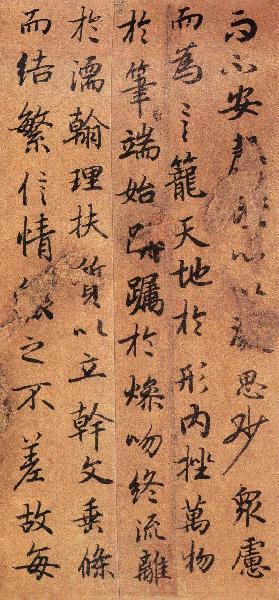 而不安心以思妙眾慮
而為言籠天地於形內挫萬物
於筆端始躅於燥吻終流離
於濡翰理扶質以立幹文垂條
而結繁信情之不差故每